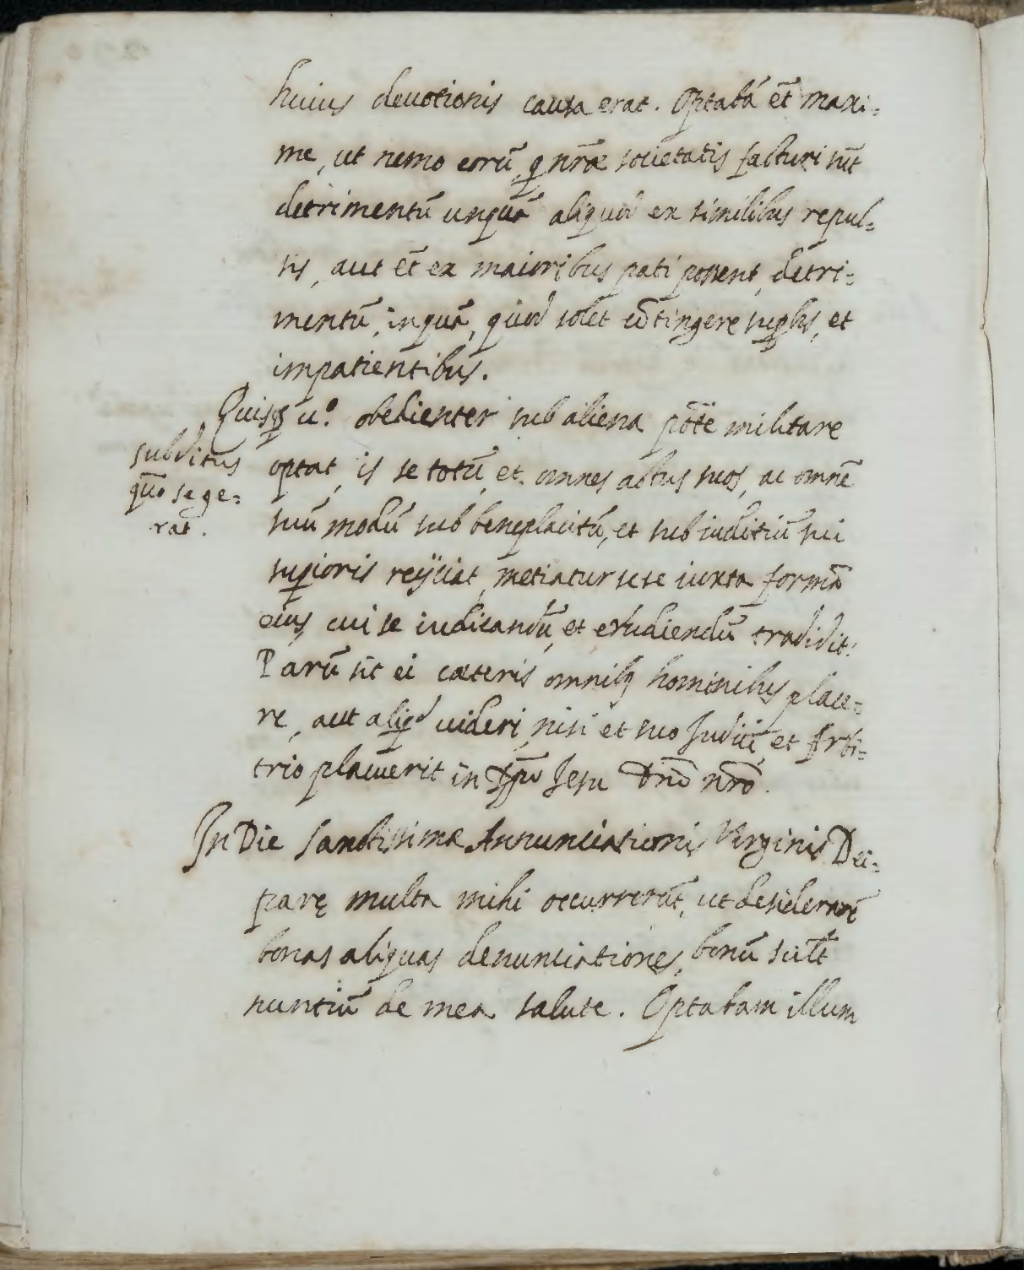 huius deuotionis causa erat. Optabā et̄ maxi-
me, ut nemo eorū, q̨ nr̄æ societatis facturi sūt
detrimentū unquā aliquod ex similibus repul-
sis, aut et̄ ex maioribus pati possent, detri-
mentū, inquā, quod solet cōtingere sup̱bis, et
impatientibus.
Quisq̨ u.º obedienter sub aliena p̄t̄ē militare
optat, is se totū, et omnes actus suos, ac omnē
suū modū sub beneplacitū, et sub iuditiū sui
sup̱ioris reijciat, metiatur sese iuxta formā
eius, cui se iudicandū, et erudiendū tradidit.
Parū sit ei cæteris omnib9 hominibus place-
re, aut aliq̨d uideri, nisi et suo Iudici, et Arbi-
trio placuerit in Xp̄o Iesu Dn̄o nr̄o.
subditus
quō se ge-
rat.
In Die Sanctissimæ Annunciationis Virginis Dei-
parę multa mihi occurrerūt, ut desiderarē
bonas aliquas denunciationes, bonū scil̄t
nuntiū de mea salute. Optabam illum